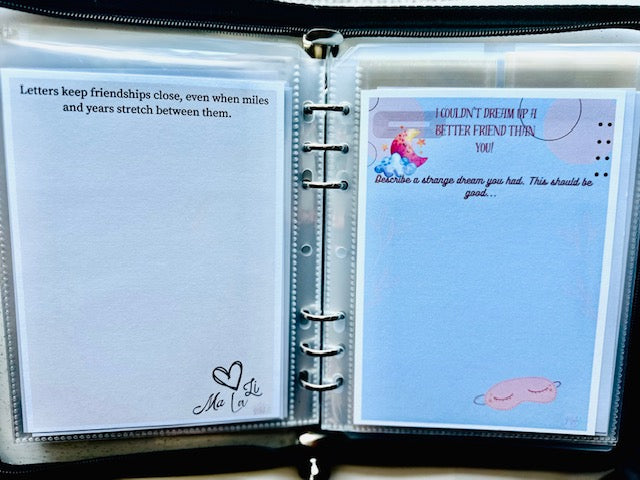 Letters keep friendships close, even when miles
and years stretch between them.
Ma La Li
I COULDN'T DREAM UP A
BETTER FRIEND THAN
YOU!
Describe a strange dream you had. This should be
good...